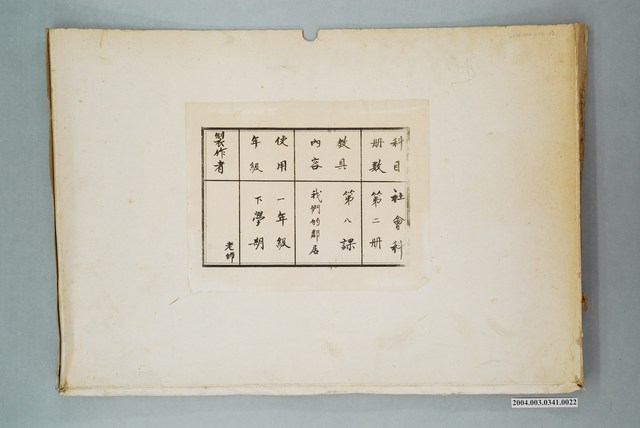 科目 社會科
冊數 第二冊
教具 第八課
內容 我們的鄰居
使用 一年級
年級 下學期
製作者 老師
2004.003.0341.0022